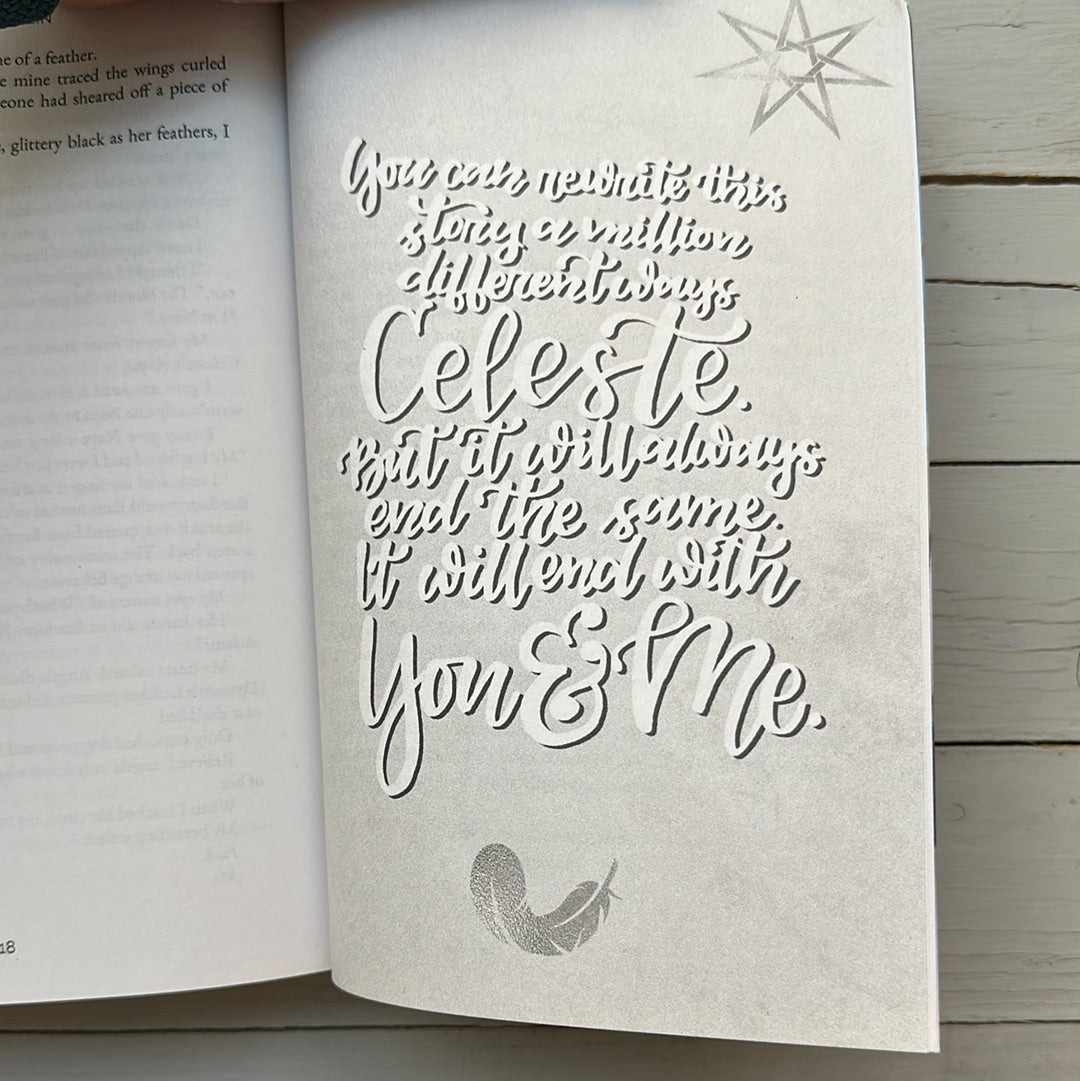 IN
ne of a feather.
e mine traced the wings curled
eone had sheared off a piece of
, glittery black as her feathers, I
18
You can rewrite this
story a million
different ways
Celeste.
But it will always
end the same.
It will end with
You & Me.